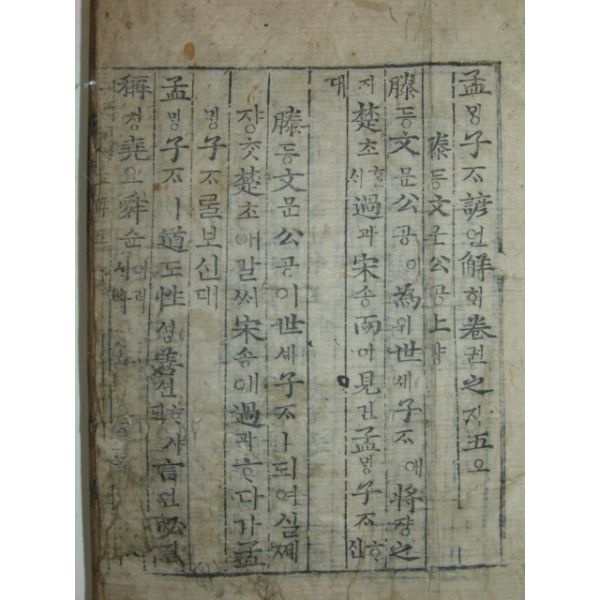 孟밍子ᄌᆞ諺언解ᄒᆡ卷권之지五오
滕등文문公공上샹
滕등文문公공이為위世셰子ᄌᆞ애將쟝之
지楚초ᄒᆞᆯ시過과宋송而이見견孟밍子ᄌᆞᄒᆞ신
대
滕등文문公공이世셰子ᄌᆞㅣ되여실쩨
쟝ᄎᆞᆺ楚초애갈씨宋송애過과ᄒᆞ다가孟
밍子ᄌᆞᄅᆞᆯ보신대
孟밍子ᄌᆞㅣ道도性셩善션ᄒᆞ샤ᄃᆡ言언必필
稱칭堯요舜슌이러시다